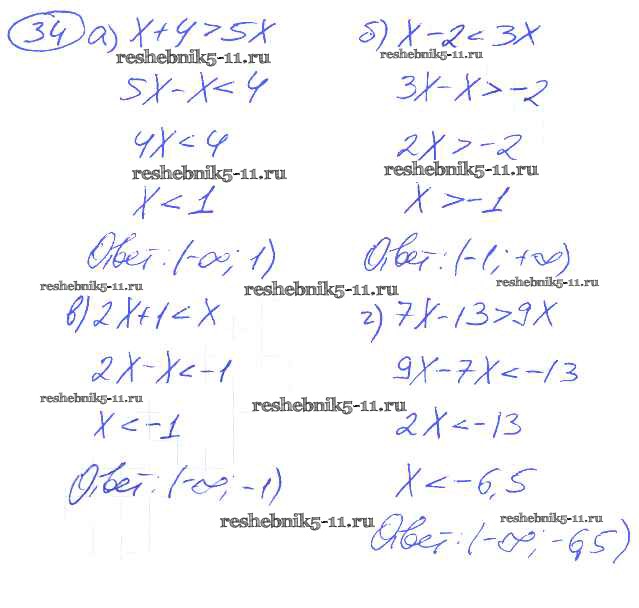 34 а) x+4>5x
reshebnik5-11.ru
5x-x<4
4x<4
reshebnik5-11.ru
x<1
Ответ: (-∞; 1)
reshebnik5-11.ru
б) x-2<3x
reshebnik5-11.ru
3x-x>-2
2x>-2
reshebnik5-11.ru
x>-1
Ответ: (-1; +∞)
reshebnik5-11.ru
reshebnik5-11.ru
в) 2x+1<x
2x-x<-1
reshebnik5-11.ru
x<-1
Ответ: (-∞; -1)
reshebnik5-11.ru
г) 7x-13>9x
9x-7x<-13
reshebnik5-11.ru
2x<-13
x<-6,5
reshebnik5-11.ru
Ответ: (-∞; -6,5)